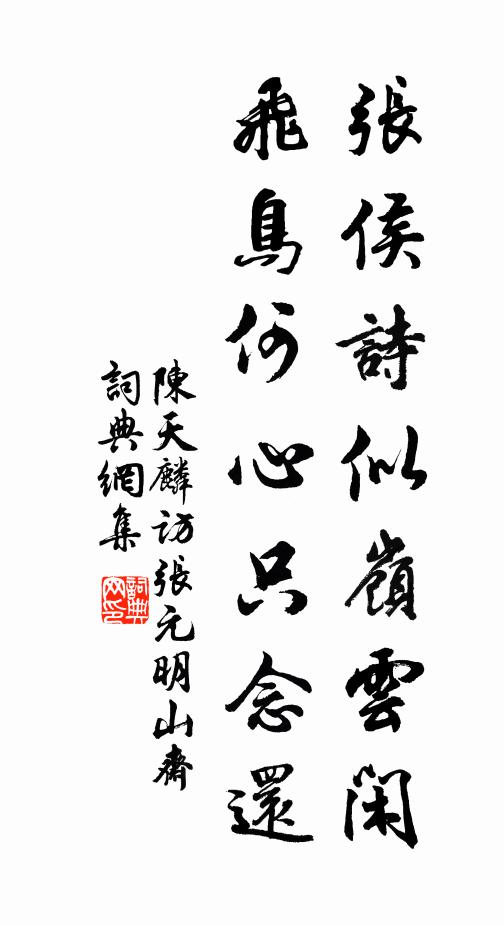 張侯詩似嶺雲閑
飛鳥何心只念還
陳天麟訪張元明山齋
詞典網集
詞典网印